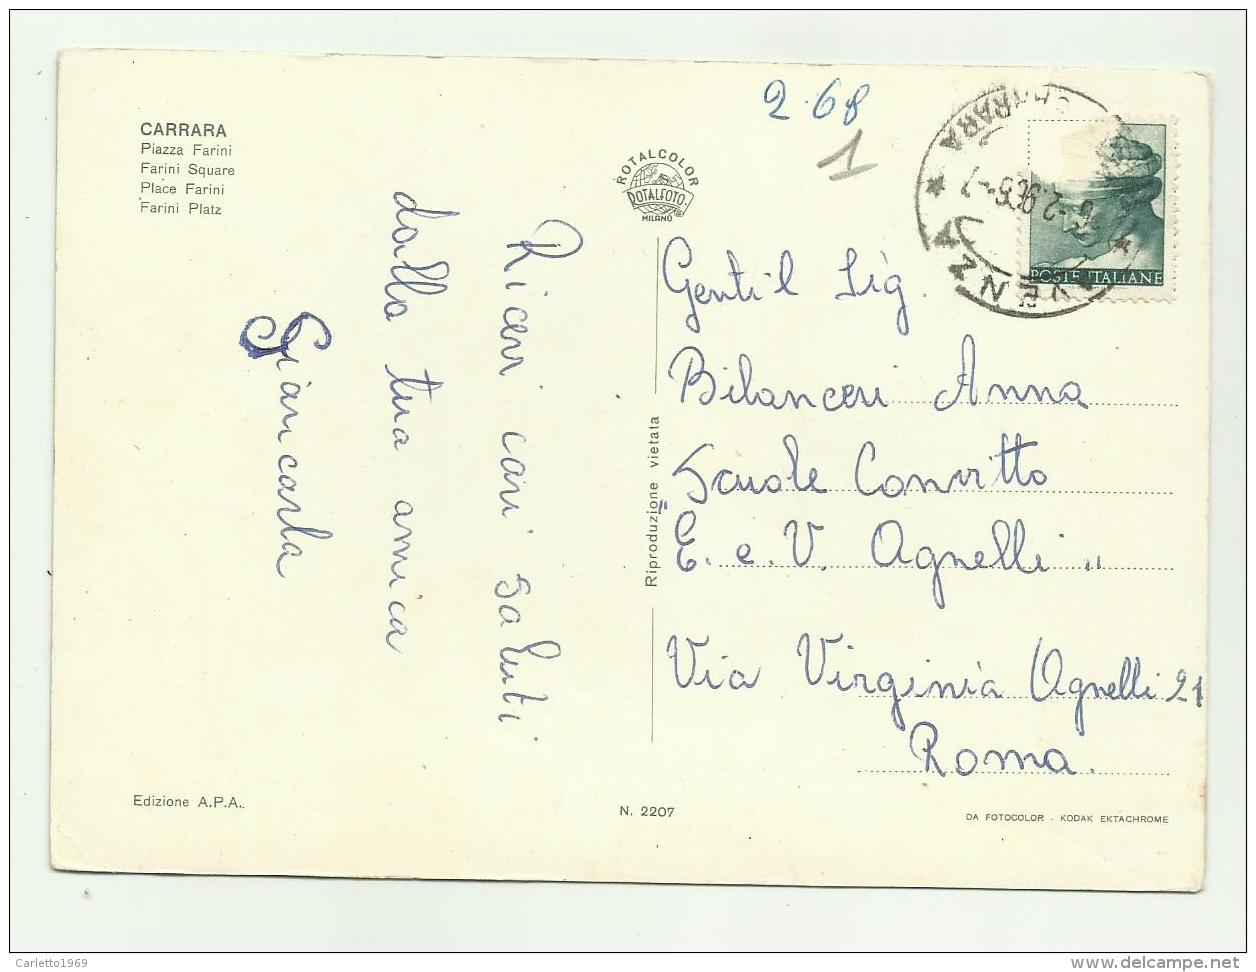 CARRARA
Piazza Farini
Farini Square
Place Farini
Farini Platz
2.68
1
ROTALCOLOR
ROTALFOTO
MILANO
CARRARA
AVENZA
POSTE ITALIANE
Ricevi cari saluti
dalla tua amica
Giancarla
Gentil Sig.
Bilanceri Anna
Scuole Convitto
"E. e. V. Agnelli"
Via Virginia Agnelli 21
Roma.
Riproduzione vietata
Edizione A.P.A.
N. 2207
DA FOTOCOLOR - KODAK EKTACHROME
Carletto1969
www.delcampe.net